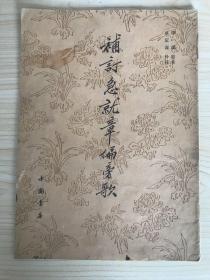 補訂急就章偏旁歌
中國書店